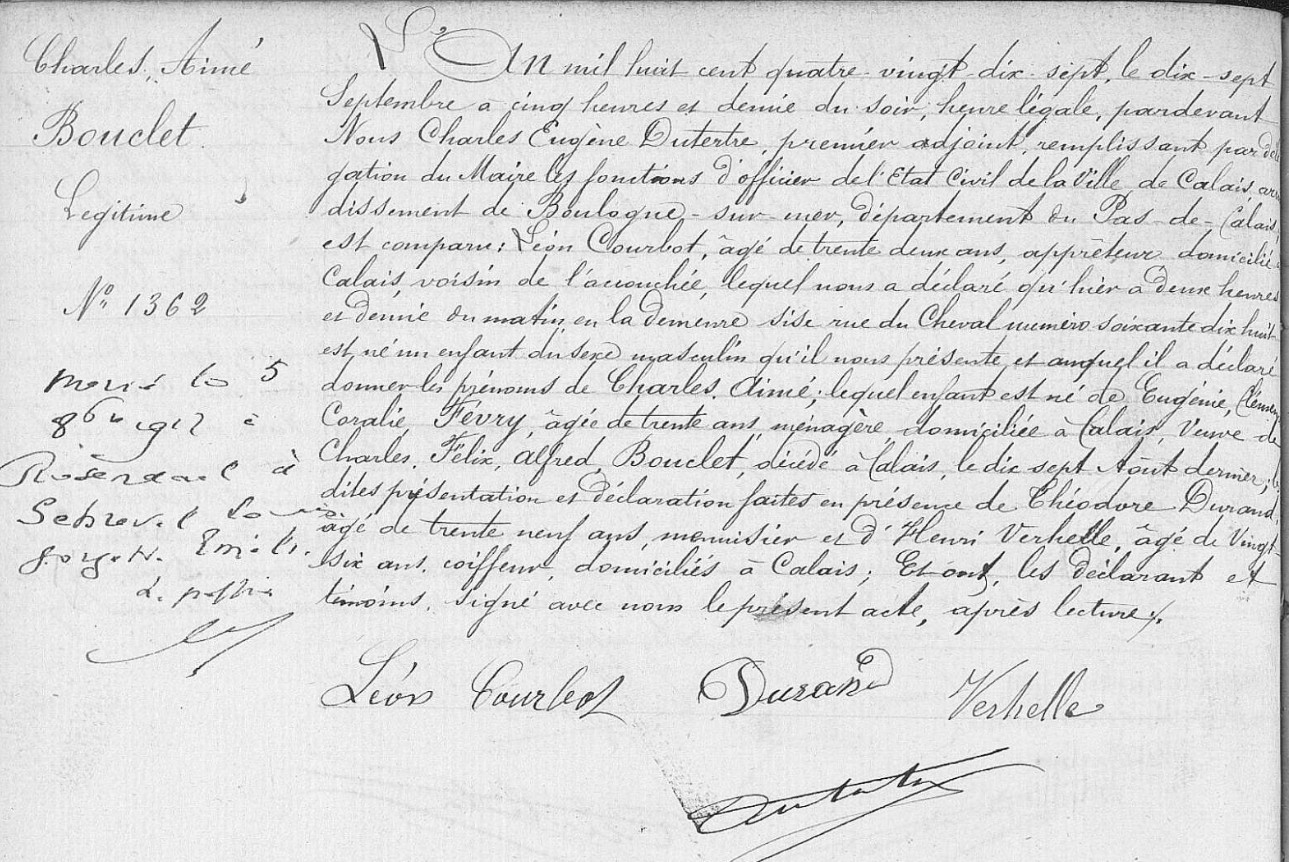 Charles, Aimé
Bouclet.
Légitime
Nº 1362
marié le 5
8bre 1912 à
Rosendael à
gorgette Emélie
L'An mil huit cent quatre-vingt-dix-sept, le dix-sept
Septembre à cinq heures et demie du soir, heure légale, pardevant
Nous Charles Eugène Dutertre, premier adjoint, remplissant par délé
gation du Maire les fonctions d'officier de l'Etat Civil de la Ville de Calais, arron
dissement de Boulogne-sur-mer, département du Pas-de-Calais,
est comparu: Léon Courbot, âgé de trente deux ans, apprêteur domicilié à
Calais, voisin de l'accouchée, lequel nous a déclaré qu'hier à deux heures
et demie du matin, en la demeure sise rue du Cheval numéro soixante dix huit
est né un enfant du sexe masculin qu'il nous présente, et auquel il a déclaré
donner les prénoms de Charles, Aimé; lequel enfant est né de Eugénie, Clémence
Coralie, Fevry, âgée de trente ans, ménagère, domiciliée à Calais, Veuve de
Charles, Félix, Alfred, Bouclet, décédé à Calais, le dix sept Août dernier; les
dites présentation et déclaration faites en présence de Théodore Durand,
âgé de trente neuf ans, menuisier et d'Henri Verhelle, âgé de Vingt
six ans, coiffeur, domiciliés à Calais; Et ont, les déclarant et
témoins, signé avec nous le présent acte, après lecture./.
Léon Courbot Durand Verhelle
Dutertre